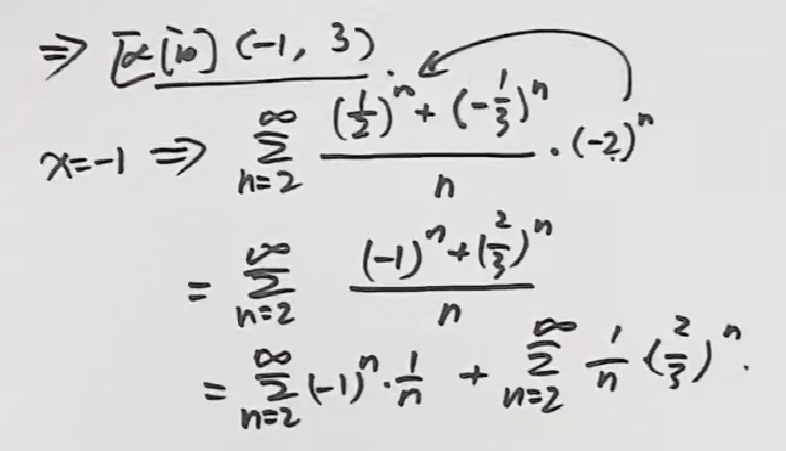 ⇒ 区间 (-1, 3).
x=-1 ⇒ ∑_{n=2}^{∞} \frac{(\frac{1}{2})^n + (-\frac{1}{3})^n}{n} · (-2)^n
= ∑_{n=2}^{∞} \frac{(-1)^n + (\frac{2}{3})^n}{n}
= ∑_{n=2}^{∞} (-1)^n · \frac{1}{n} + ∑_{n=2}^{∞} \frac{1}{n} (\frac{2}{3})^n.